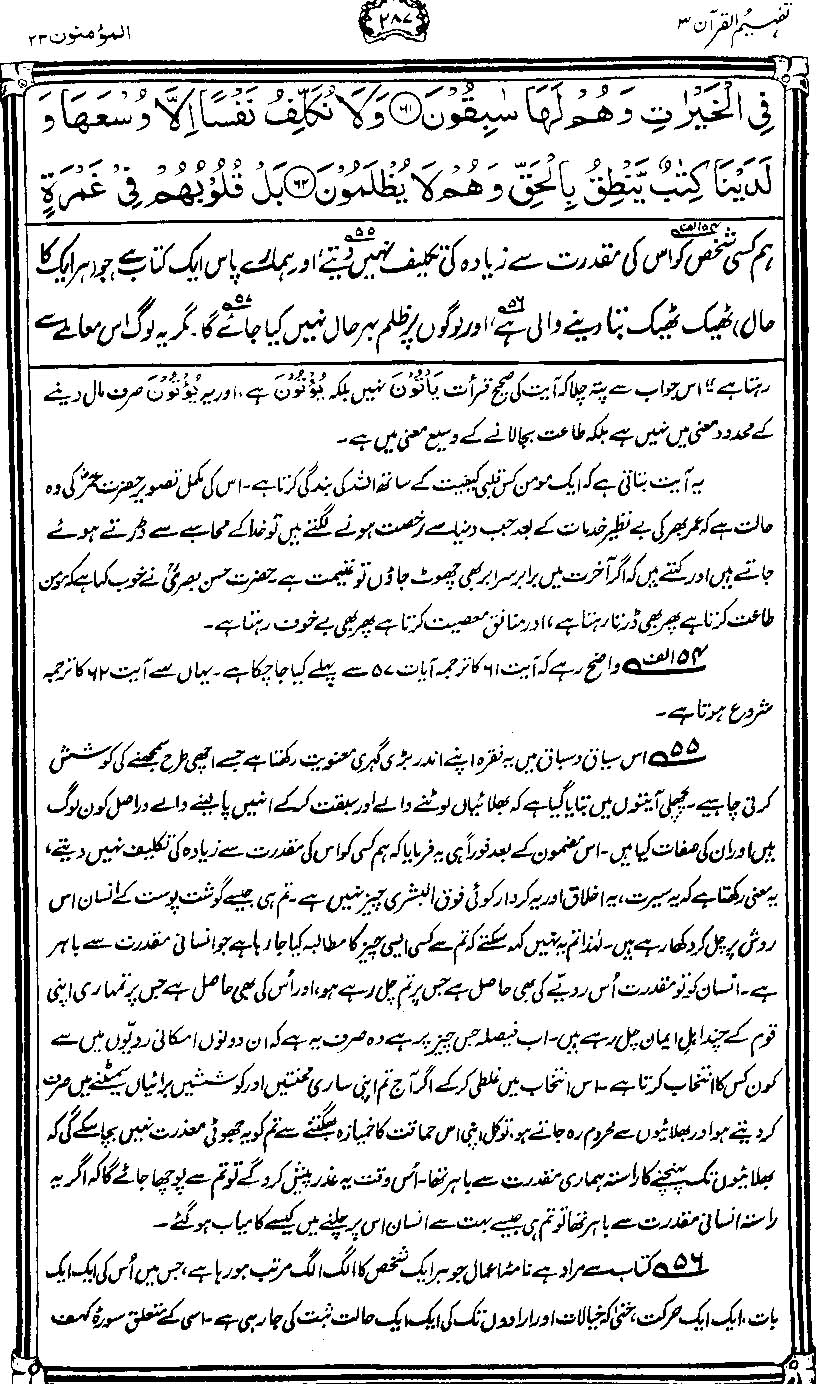 تفہیم القرآن ۳
۲۸۷
المؤمنون ۲۳
فِی الْخَیْرٰتِ وَهُمْ لَهَا سٰبِقُوْنَ ﴿۶۱﴾ وَلَا نُكَلِّفُ نَفْسًا اِلَّا وُسْعَهَا وَ
لَدَیْنَا كِتٰبٌ یَّنْطِقُ بِالْحَقِّ وَهُمْ لَا یُظْلَمُوْنَ ﴿۶۲﴾ بَلْ قُلُوْبُهُمْ فِیْ غَمْرَةٍ
۵۴الف ہم کسی شخص کو اس کی مقدرت سے زیادہ کی تکلیف نہیں دیتے ۵۵، اور ہمارے پاس ایک کتاب ہے جو (ہر ایک کا
حال) ٹھیک ٹھیک بتا دینے والی ہے ۵۶، اور لوگوں پر ظلم بہرحال نہیں کیا جائے گا ۵۷۔ مگر یہ لوگ اس معاملے سے
رہتا ہے“ اس جواب سے پتہ چلا کہ آیت کی صحیح قرأت یَأْتُوْنَ نہیں بلکہ یُؤْتُوْنَ ہے، اور یہ یُؤْتُوْنَ صرف مال دینے
کے محدود معنی میں نہیں ہے بلکہ طاعت بجا لانے کے وسیع معنی میں ہے۔
یہ آیت بتاتی ہے کہ ایک مومن کس قلبی کیفیت کے ساتھ اللہ کی بندگی کرتا ہے۔ اس کی مکمل تصویر حضرت عمرؓ کی وہ
حالت ہے کہ عمر بھر کی بے نظیر خدمات کے بعد جب دنیا سے رخصت ہونے لگتے ہیں تو خدا کے محاسبے سے ڈرتے ہوئے
جاتے ہیں اور کہتے ہیں کہ اگر آخرت میں برابر سرابر بھی چھوٹ جاؤں تو غنیمت ہے۔ حضرت حسن بصریؒ نے خوب کہا ہے کہ مومن
طاعت کرتا ہے پھر بھی ڈرتا رہتا ہے، اور منافق معصیت کرتا ہے پھر بھی بے خوف رہتا ہے۔
۵۴الف واضح رہے کہ آیت ۶۱ کا ترجمہ آیات ۵۷ سے پہلے کیا جا چکا ہے۔ یہاں سے آیت ۶۲ کا ترجمہ
شروع ہوتا ہے۔
۵۵ اس سیاق و سباق میں یہ فقرہ اپنے اندر بڑی گہری معنویت رکھتا ہے جسے اچھی طرح سمجھنے کی کوشش
کرنی چاہیے۔ پچھلی آیتوں میں بتایا گیا ہے کہ بھلائیاں لوٹنے والے اور سبقت کر کے انہیں پا لینے والے دراصل کون لوگ
ہیں اور ان کی صفات کیا ہیں۔ اس مضمون کے بعد فوراً ہی یہ فرمایا کہ ہم کسی کو اس کی مقدرت سے زیادہ کی تکلیف نہیں دیتے،
یہ معنی رکھتا ہے کہ یہ سیرت، یہ اخلاق اور یہ کردار کوئی فوق البشری چیز نہیں ہے۔ تم ہی جیسے گوشت پوست کے انسان اس
روش پر چل کر دکھا رہے ہیں۔ لہٰذا تم یہ نہیں کہہ سکتے کہ تم سے کسی ایسی چیز کا مطالبہ کیا جا رہا ہے جو انسانی مقدرت سے باہر
ہے۔ انسان کو تو مقدرت اُس رویّے کی بھی حاصل ہے جس پر تم چل رہے ہو، اور اُس کی بھی حاصل ہے جس پر تمہاری اپنی
قوم کے چند اہلِ ایمان چل رہے ہیں۔ اب فیصلہ جس چیز پر ہے وہ صرف یہ ہے کہ ان دونوں امکانی رویّوں میں سے
کون کس کا انتخاب کرتا ہے۔ اس انتخاب میں غلطی کر کے اگر آج تم اپنی ساری محنتیں اور کوششیں برائیاں سمیٹنے میں صرف
کر دیتے ہو اور بھلائیوں سے محروم رہ جاتے ہو، تو کل اپنی اس حماقت کا خمیازہ بھگتنے سے تم کو یہ جھوٹی معذرت نہیں بچا سکے گی کہ
بھلائیوں تک پہنچنے کا راستہ ہماری مقدرت سے باہر تھا۔ اُس وقت یہ عذر پیش کرو گے تو تم سے پوچھا جائے گا کہ اگر یہ
راستہ انسانی مقدرت سے باہر تھا تو تم ہی جیسے بہت سے انسان اس پر چلنے میں کیسے کامیاب ہو گئے۔
۵۶ کتاب سے مراد ہے نامۂ اعمال جو ہر ایک شخص کا الگ الگ مرتب ہو رہا ہے، جس میں اُس کی ایک ایک
بات، ایک ایک حرکت، حتیٰ کہ خیالات اور ارادوں تک کی ایک ایک حالت ثبت کی جا رہی ہے۔ اسی کے متعلق سورۂ کہف